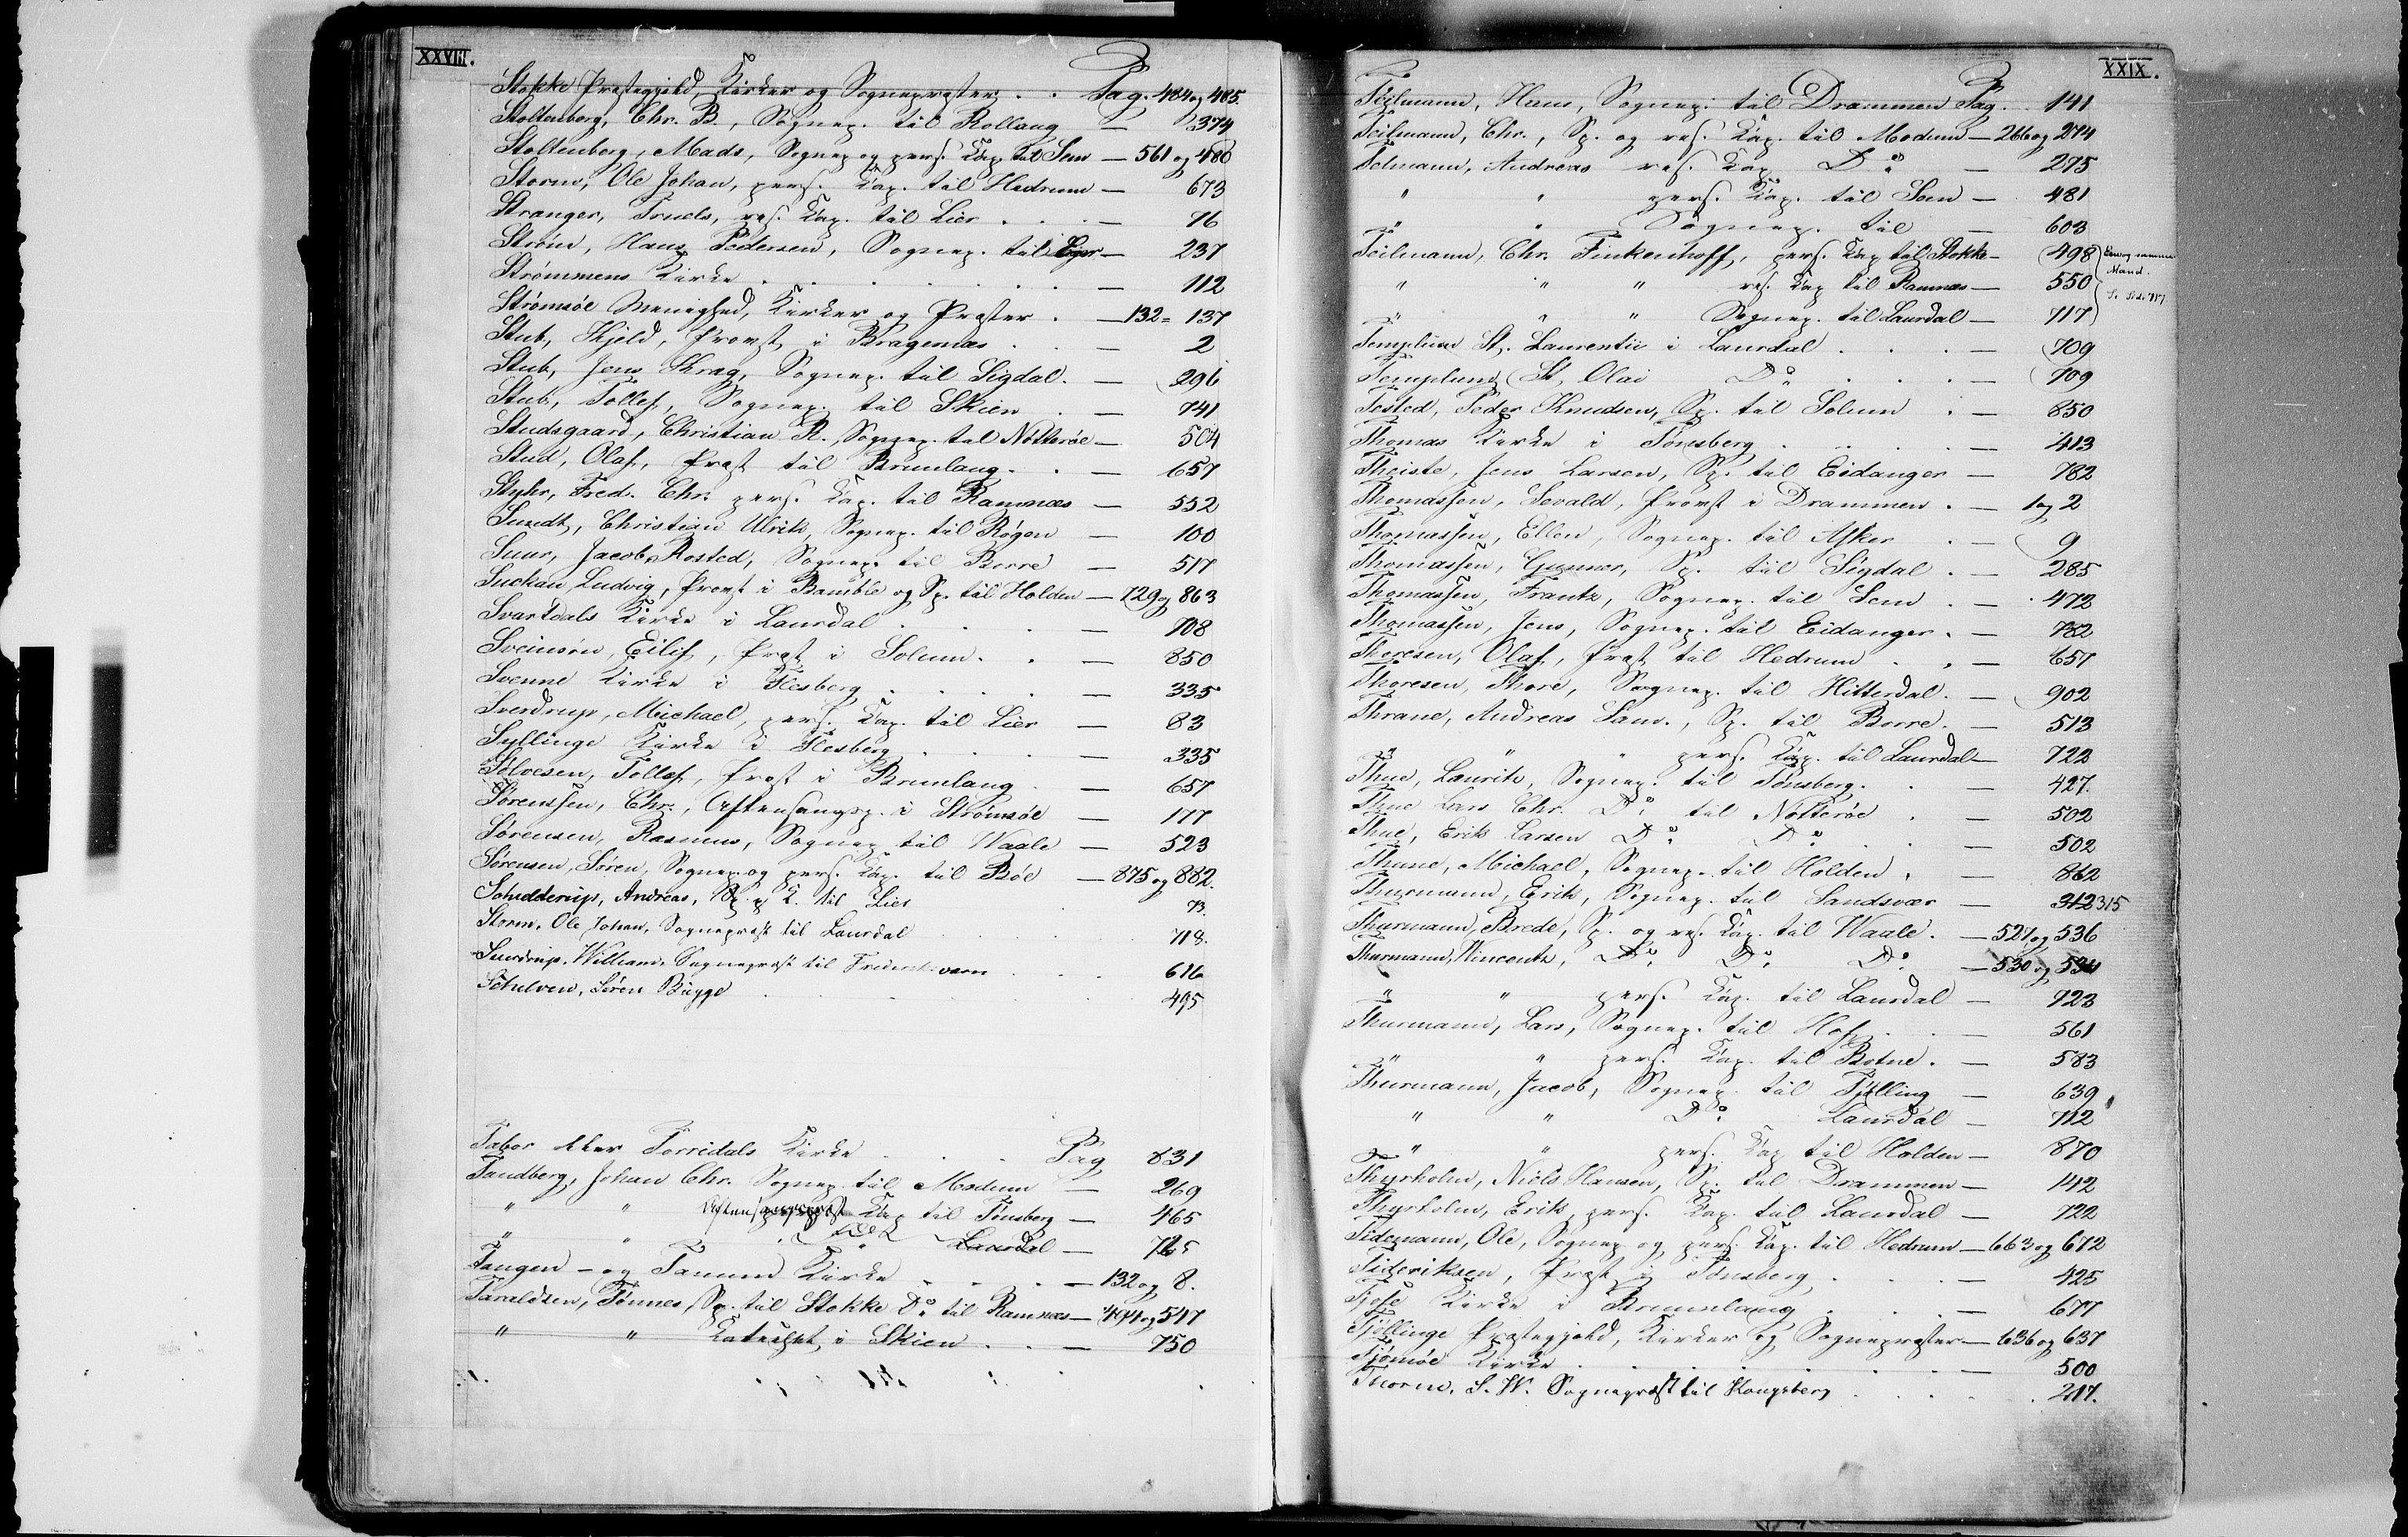 XXVIII.
Stokke Præstegjeld, Kirker og Sognepræster . . Pag. 484 og 485.
Stoltenberg, Chr. B., Sognep. til Rollaug — 374
Stoltenberg, Mads, Sognep. og pers. Kap. til Sem — 561 og 480
Storm, Ole Johan, pers. Kap. til Hedrum — 673
Stranger, Truels, res. Kap. til Lier . . . — 76
Strøm, Hans Pedersen, Sognep. til Eger — 237
Strømmens Kirke . . . . . . — 112
Strømsøe Menighed, Kirker og Præster . — 132 = 137
Stub, Kjeld, Provst i Bragernæs . . — 2
Stub, Jens Krag, Sognep. til Sigdal. — 296
Stub, Tollef, Sognep. til Skien . — 741
Studsgaard, Christian R., Sognep. til Nøtterøe — 504
Stud, Olaf, Præst til Brunlaug. . — 657
Styhr, Fred. Chr. pers. Kap. til Ramnæs — 552
Sundt, Christian Ulrik, Sognep. til Røgen — 100
Suur, Jacob Rosted, Sognep. til Borre — 517
Suckau, Ludvig, Provst i Bamble og Sp. til Holden — 729 og 863
Svartdals Kirke i Laurdal . . . — 708
Sveinsøn, Eilif, Præst i Solum. . — 850
Svenne Kirke i Flesberg . . . . — 335
Sverdrup, Michael, pers. Kap. til Lier — 83
Syllinge Kirke i Flesberg . . . — 335
Sølvesen, Tollef, Præst i Brunlaug . — 657
Sørenssen, Chr., Aftensangsp. i Strømsøe — 177
Sørensen, Rasmus, Sognep. til Waale — 523
Sørensen, Søren, Sognep. og pers. Kap. til Bøe — 875 og 882.
Schidderup, Andreas, Sp. p. K. til Lier 73.
Storm, Ole Johan, Sognepræst til Laurdal . . . 718.
Sverdrup, William, Sognepræst til Frederiksværn . . . 616
Schelven, Søren Bugge . . . 495
Tabor eller Torridals Kirke . . . Pag 831
Tandberg, Johan Chr. Sognep. til Modum — 269
" " Aftensangspræst Kap til Tønsberg — 465
" " Laurdal — 725
Tangen - og Tanum Kirke . . . — 132 og 8.
Taraldsen, Tønnes, Sp. til Stokke Do. til Ramnæs — 494 og 547
" " Katechet i Skien . . — 750
XXIX.
Teilmann, Hans, Sognep. til Drammen Pag. 141
Teilmann, Chr., Sp. og res. Kap. til Modum — 266 og 274
Telmann, Andreas res. Kap. Do. — 275
" " pers. Kap. til Sem — 481
" " Sognep. til — 603
Teilmann, Chr. Finkenhoff, pers. Kap til Stokke — 498 Een og samme
" " " res. Kap til Ramnæs — 550 Mand.
" " " Sognep. til Laurdal — 717 S. Sid. 717
Templum St. Laurentii i Laurdal . . . — 709
Templum St. Olai Do. . . . — 709
Tested, Peder Knudsen, Sp. til Solum . — 850
Thomas Kirke i Tønsberg . . . — 413
Theiste, Jens Larsen, Sp. til Eidanger — 782
Thomassen, Sevald, Provst i Drammen . — 1 og 2
Thomassen, Ellen, Sognep. til Asker . — 9
Thomassen, Gunner, Sp. til Sigdal . — 285
Thomassen, Frantz, Sognep. til Sem . — 472
Thomassen, Jens, Sognep. til Eidanger . — 782
Thoresen, Olaf, Præst til Hedrum . . — 657
Thoresen, Thore, Sognep. til Hitterdal. — 902
Thrane, Andreas Sam., Sp. til Borre. — 513
" " " pers. Kap. til Laurdal — 722
Thue, Lauritz, Sognep. til Tønsberg. . — 427.
Thue Lars Chr. Do. til Nøtterøe . — 502
Thue, Erik Larsen Do. Do. . . — 502
Thune, Michael, Sognep. til Holden . — 862
Thurmann, Erik, Sognep. til Sandsvær — 312 315
Thurmann, Brede, Sp. og res. Kap. til Waale. — 527 og 536
Thurmann, Vincentz, Do. Do. Do. — 530 og 534
" " pers. Kap. til Laurdal — 723
Thurmann, Lars, Sognep. til Hof . . — 561
" " pers. Kap. til Botne. — 583
Thurmann, Jacob, Sognep. til Tjølling — 639
" " Do. Laurdal — 712
" " pers. Kap til Holden — 870
Thyrholm, Niels Hansen, Sp. til Drammen — 142
Thyrholm, Erik, pers. Kap. til Laurdal — 722
Tidemann, Ole, Sognep. og pers. Kap. til Hedrum — 663 og 672
Tideriksen, Præst i Tønsberg . . . — 425
Tjose Kirke i Brunnlaug . . . — 677
Tjøllinge Præstegjeld, Kirker og Sognepræster — 636 og 637
Tjømøe Kirke . . . . . . — 500
Thorne, S. W. Sognepræst til Kongsberg . . . . 217.